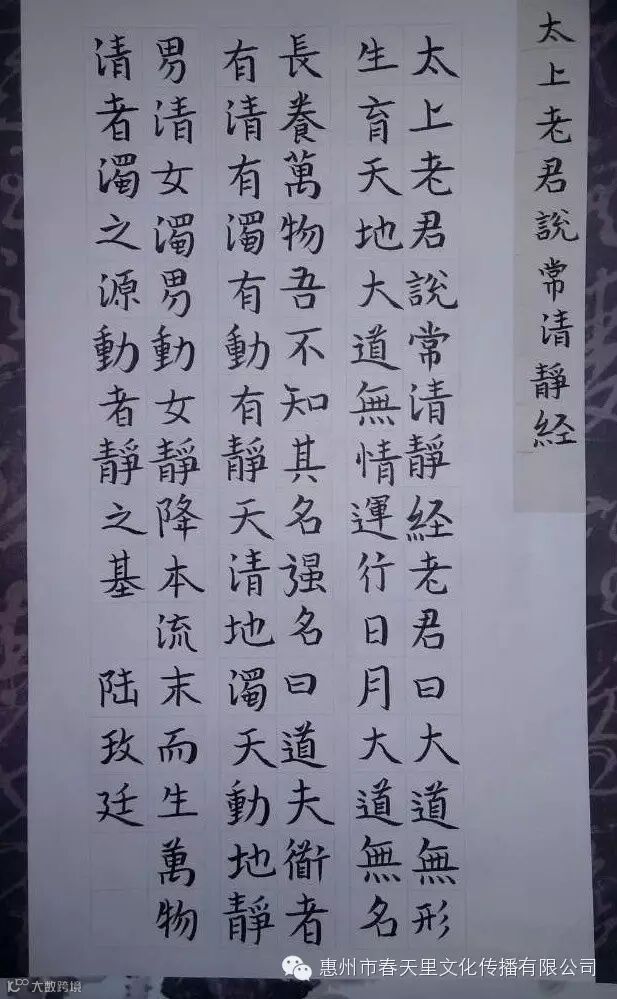 太上老君說常清靜経
太上老君說常清靜経老君曰大道無形
生育天地大道無情運行日月大道無名
長養萬物吾不知其名强名曰道夫衜者
有清有濁有動有靜天清地濁天動地靜
男清女濁男動女靜降本流末而生萬物
清者濁之源動者靜之基 陆玫廷
惠州市春天里文化传播有限公司
大数跨境